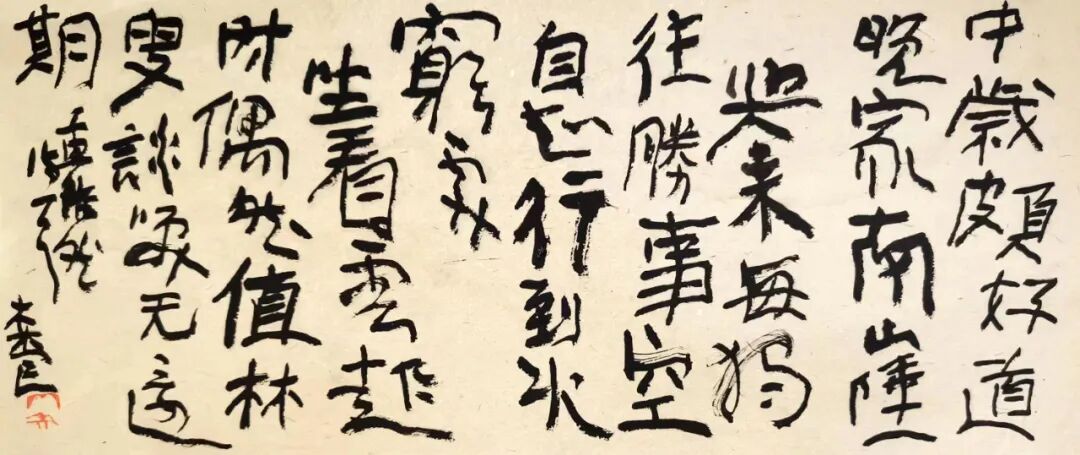 中歲頗好道
晚家南山陲
興来每独
往勝事空
自知行到水
窮處
坐看雲起
时偶然值林
叟談笑无還
期
王維